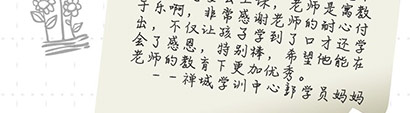 上课，老师是寓教
于乐啊，非常感谢老师的耐心付
出，不仅让孩子学到了口才还学
会了感恩，特别棒，希望他能在
老师的教育下更加优秀。
--禅城学训中心郭学员妈妈